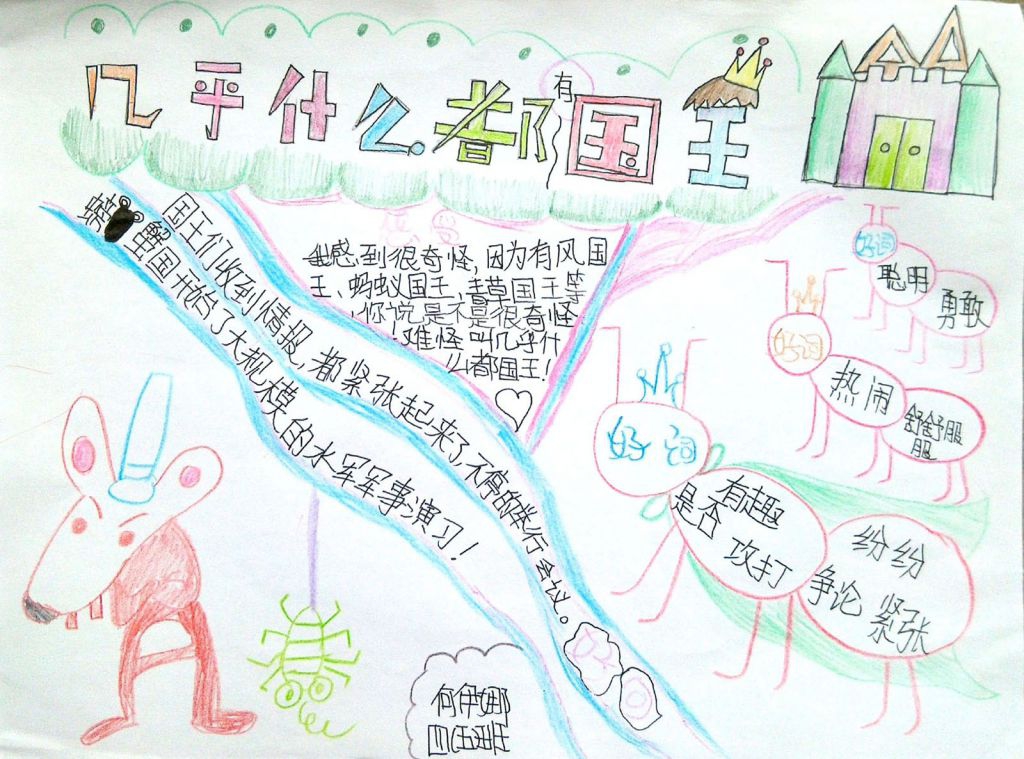 几乎什么都有国王
国王们收到情报，都紧张起来了，不停的举行会议。
螃蟹国开始了大规模的水军军事演习！
感到很奇怪，因为有风国
王、蚂蚁国王、青草国王等
，你说是不是很奇怪
！难怪叫几乎什
么都国王！
好词
聪明
勇敢
好词
热闹
舒舒服
服
好词
有趣
是否
攻打
纷纷
争论
紧张
何伊娜
四五班